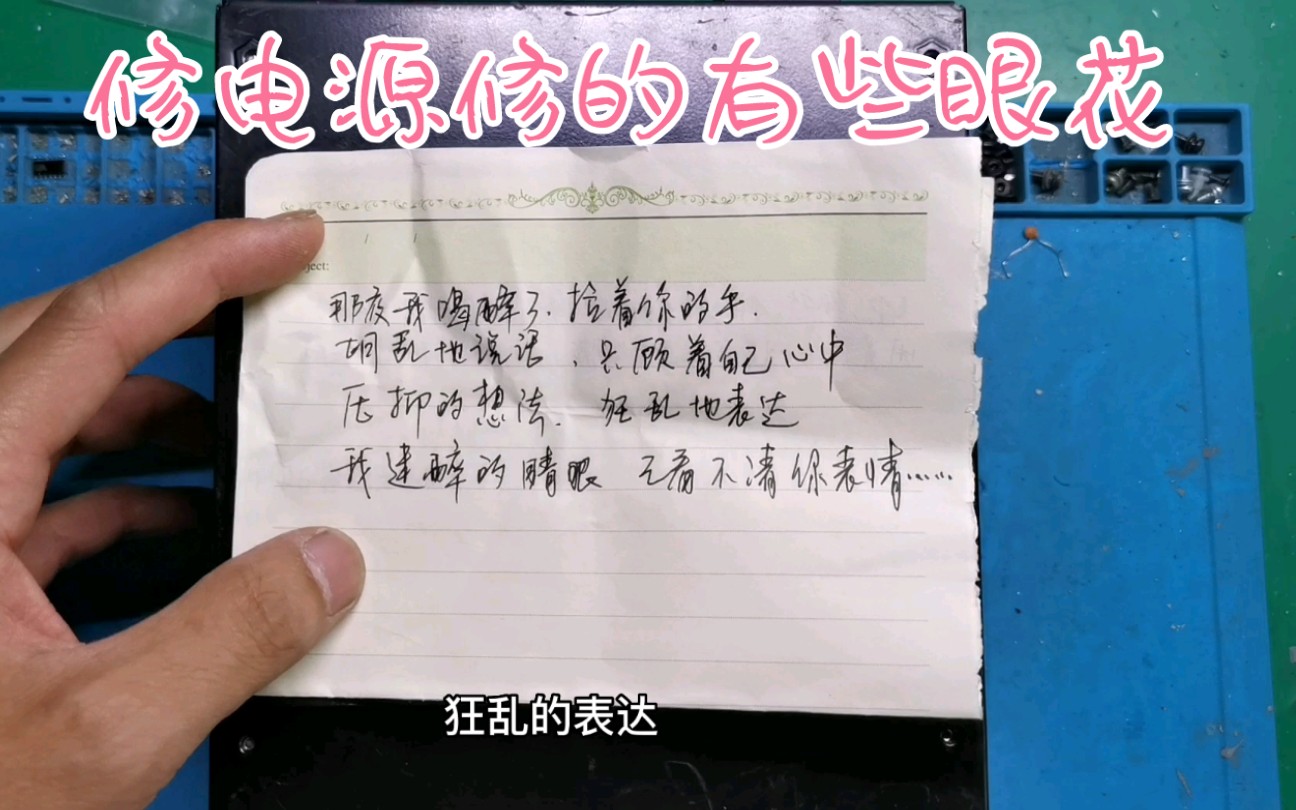 修电源修的有些眼花
ject:
那夜我喝醉了.拉着你的手.
胡乱地说话、只顾着自己心中
压抑的想法. 狂乱地表达
我迷醉的睛眼 已看不清你表情……
狂乱的表达